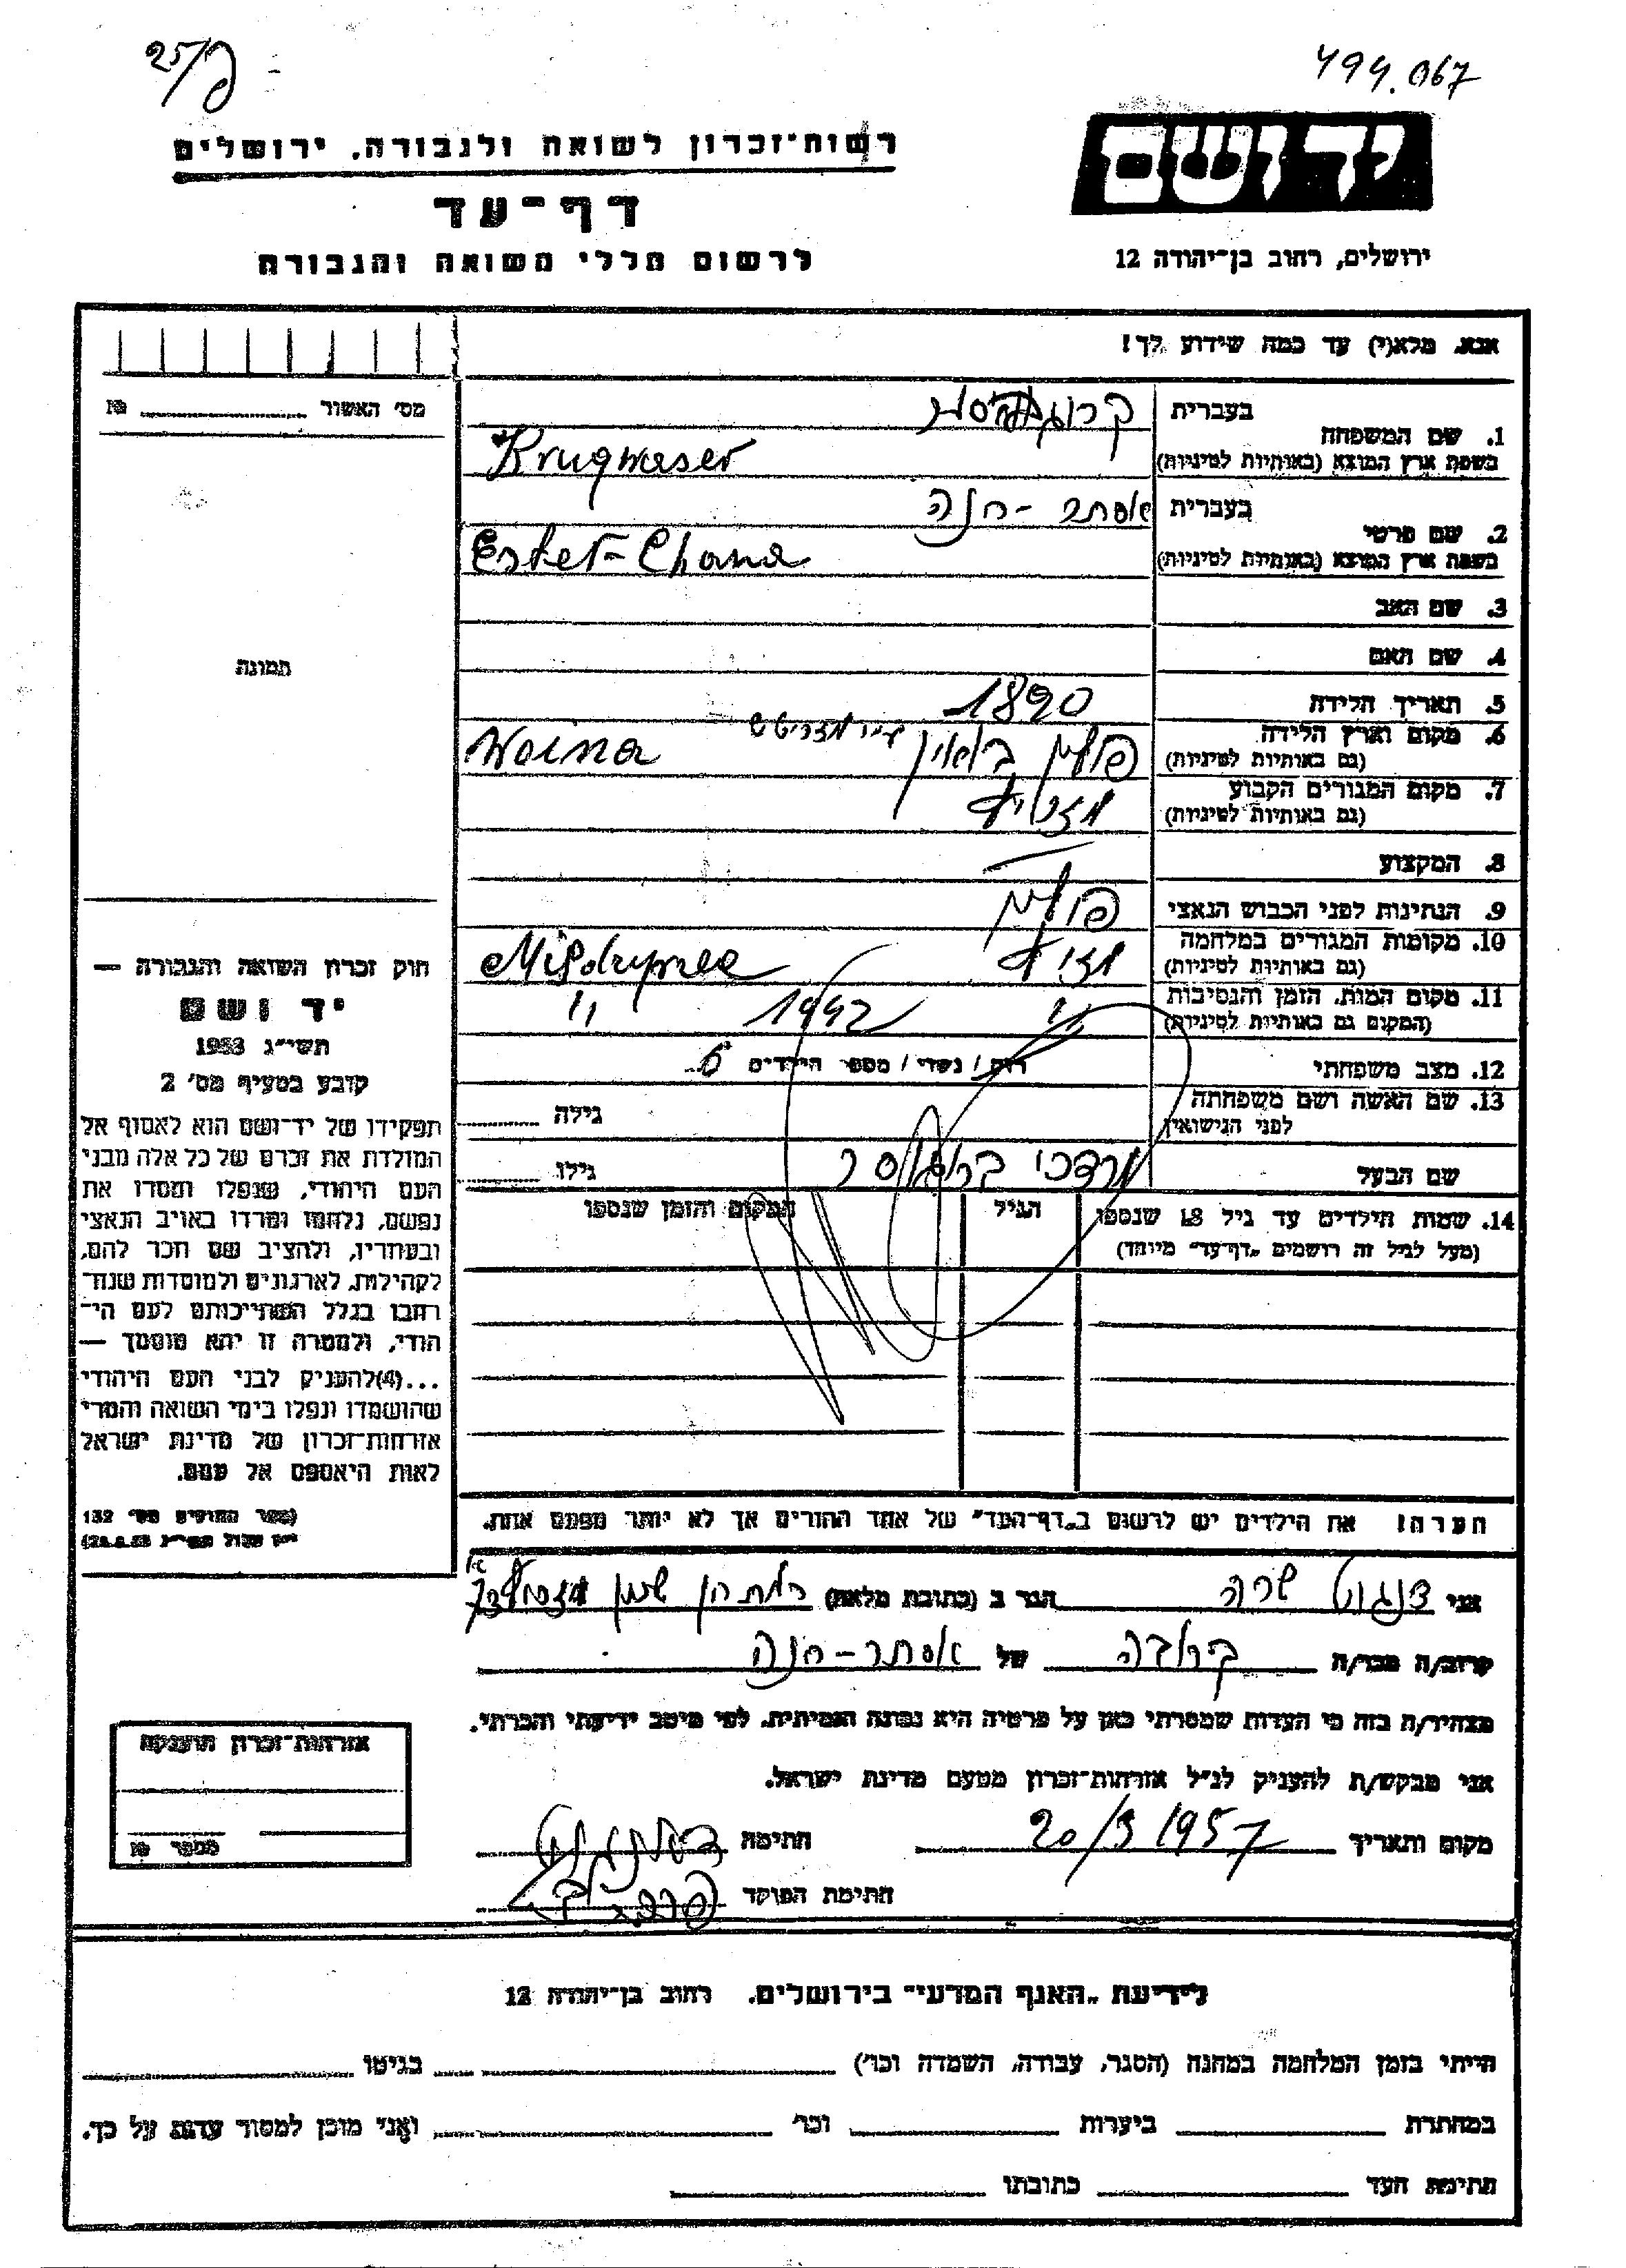 25/
494.067
רשות־זכרון לשואה ולגבורה, ירושלים
יד ושם
דף־עד
לרשום חללי השואה והגבורה
ירושלים, רחוב בן־יהודה 12
אנא, מלא(י) עד כמה שידוע לך!
מס׳ האשור № 
1. שם המשפחה
בעברית
בשפת ארץ המוצא (באותיות לטיניות)
Krugwaser
2. שם פרטי
בעברית אסתר - חנה
בשפת ארץ המוצא (באותיות לטיניות)
Ester-Chana
3. שם האב
4. שם האם
תמונה
5. תאריך הלידה 1890
6. מקום וארץ הלידה
(גם באותיות לטיניות)
פולין Woina
7. מקום המגורים הקבוע
(גם באותיות לטיניות)
8. המקצוע —
9. הנתינות לפני הכבוש הנאצי פולין
10. מקומות המגורים במלחמה
(גם באותיות לטיניות)
11. מקום המות, הזמן והנסיבות
(המקום גם באותיות לטיניות)
״ 1942 ״
12. מצב משפחתי רווק / נשוי / מספר הילדים
13. שם האשה ושם משפחתה
לפני הנישואין
גילה
שם הבעל מרדכי
גילו
14. שמות הילדים עד גיל 18 שנספו
(מעל לגיל זה רושמים „דף־עד״ מיוחד)
הגיל
המקום והזמן שנספו
חוק זכרון השואה והגבורה —
יד ושם
תשי״ג 1953
קובע בסעיף מס׳ 2
תפקידו של יד־ושם הוא לאסוף אל
המולדת את זכרם של כל אלה מבני
העם היהודי, שנפלו ומסרו את
נפשם, נלחמו ומרדו באויב הנאצי
ובעוזריו, ולהציב שם וזכר להם,
לקהילות, לארגונים ולמוסדות שנח־
רבו בגלל השתייכותם לעם הי־
הודי, ולמטרה זו יהא מוסמך —
...(4)להעניק לבני העם היהודי
שהושמדו ונפלו בימי השואה והמרי
אזרחות־זכרון של מדינת ישראל
לאות היאספם אל עמם.
(ספר החוקים מס׳ 132
הערה! את הילדים יש לרשום ב„דף־העד״ של אחד ההורים אך לא יותר מפעם אחת.
אני שרה הגר ב (כתובת מלאה) רמת הן
קרוב/ה מכר/ה קרובה של אסתר - חנה
מצהיר/ה בזה כי העדות שמסרתי כאן על פרטיה היא נכונה ואמיתית, לפי מיטב ידיעתי והכרתי.
אני מבקש/ת להעניק לנ״ל אזרחות־זכרון מטעם מדינת ישראל.
מקום ותאריך 20/3 1957 חתימה
חתימת הפוקד
אזרחות־זכרון הוענקה
מספר №
לידיעת „האגף המדעי״ בירושלים, רחוב בן־יהודה 12
הייתי בזמן המלחמה במחנה (הסגר, עבודה, השמדה וכו׳) בגיטו
במחתרת ביערות וכו׳ ואני מוכן למסור עדות על כך.
חתימת העד כתובתו